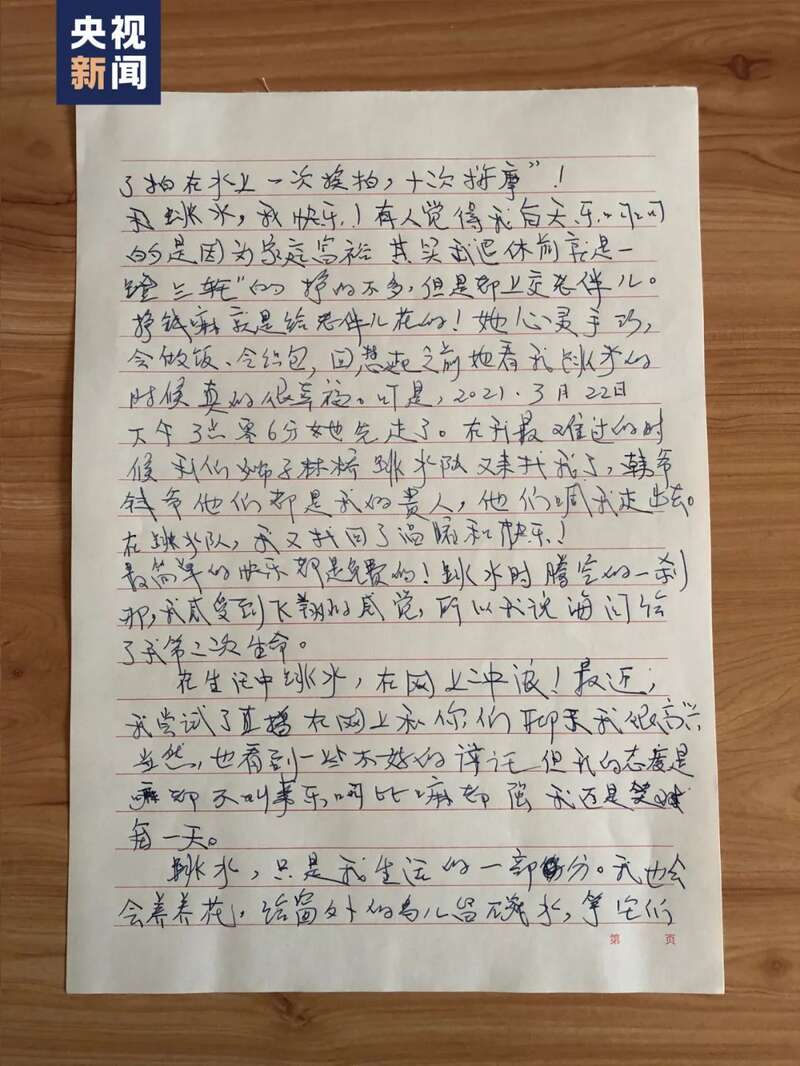 央视
新闻
了拍在水上一次挨拍，十次按摩”！
我跳水，我快乐！有人觉得我每天乐呵呵
的是因为家庭富裕 其实我退休前就是一
蹬三轮”的 挣的不多，但是都上交老伴儿。
挣钱嘛就是给老伴儿花的！她心灵手巧，
会做饭、会织包，回想起之前她看我跳水的
时候真的很幸福。可是，2021.3月22日
下午3点零6分她先走了。在我最难过的时
候 我们狮子林桥跳水队又来找我了，韩爷
钱爷他们都是我的贵人，他们调我走出去。
在跳水队，我又找回了温暖和快乐！
最简单的快乐都是免费的！跳水时腾空的一刹
那，我感受到飞翔的感觉，所以我说海河给
了我第二次生命。
在生活中跳水，在网上冲浪！最近，
我尝试了直播 在网上和你们聊天我很高兴
当然，也看到一些不好的评论 但我的态度是
嘛都不叫事乐呵比嘛都强 我还是笑对
每一天。
跳水，只是我生活的一部分。我也会
会养养花，给窗外的鸟儿留碗水，等它们
第 页